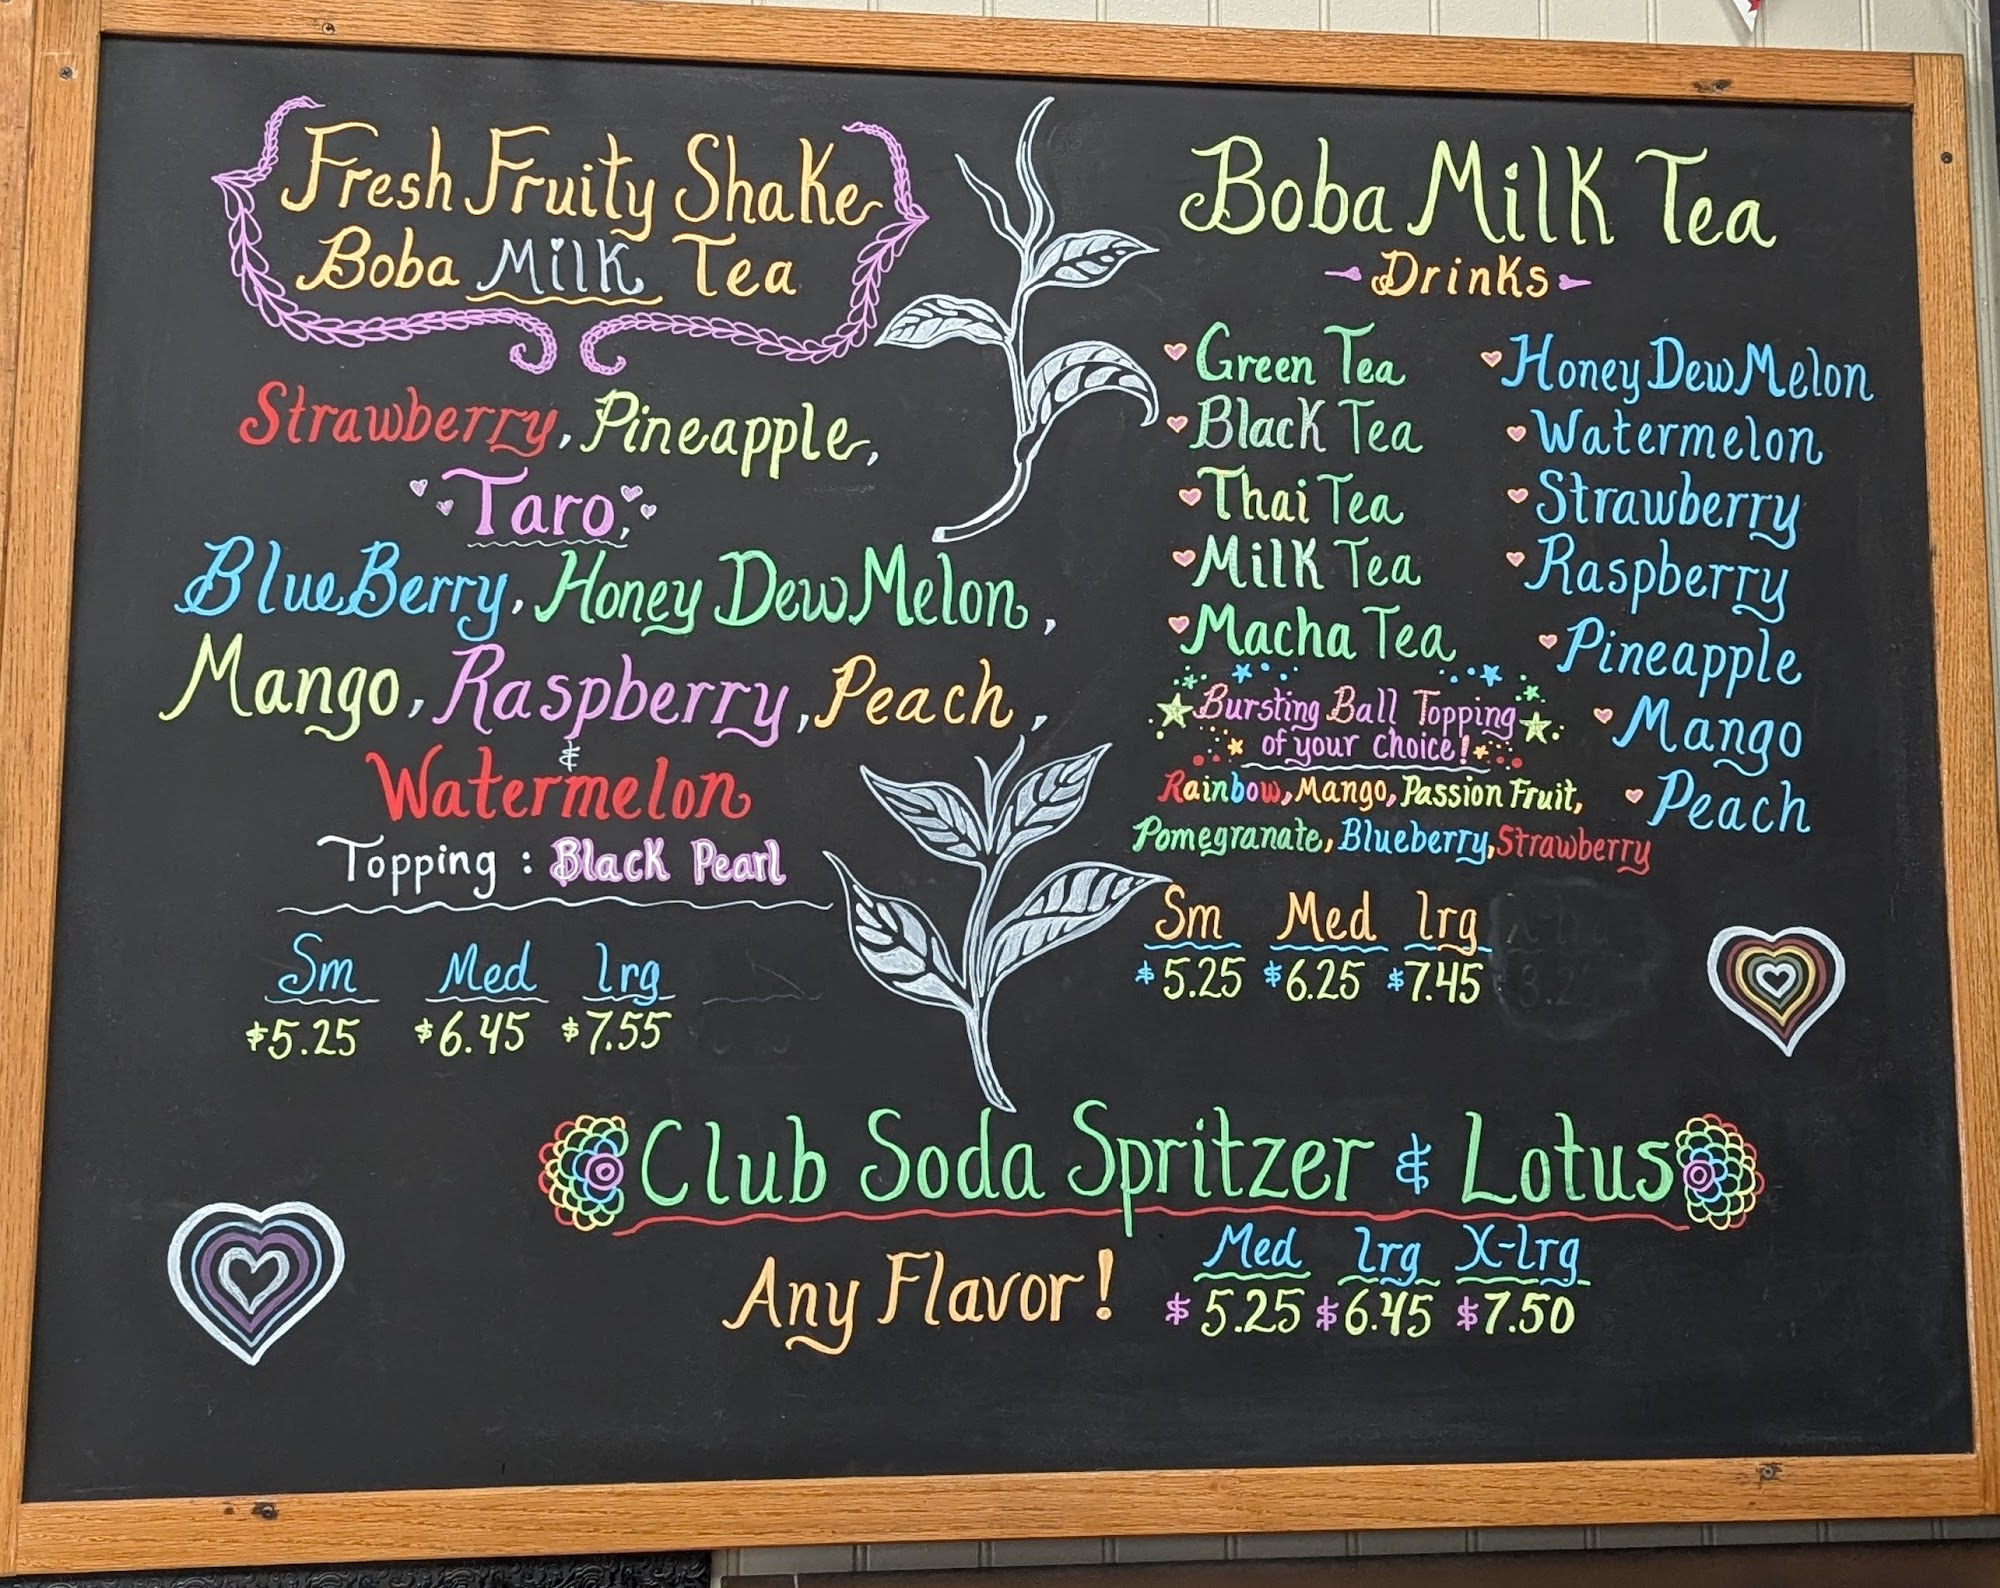 Fresh Fruity Shake
Boba Milk Tea
Strawberry, Pineapple,
Taro,
BlueBerry, Honey Dew Melon,
Mango, Raspberry, Peach,
&
Watermelon
Topping : Black Pearl
Sm Med lrg
$5.25 $6.45 $7.55
Boba Milk Tea
Drinks
Green Tea
Black Tea
Thai Tea
Milk Tea
Macha Tea
Honey Dew Melon
Watermelon
Strawberry
Raspberry
Pineapple
Mango
Peach
Bursting Ball Topping
of your choice!
Rainbow, Mango, Passion Fruit,
Pomegranate, Blueberry, Strawberry
Sm Med lrg
$5.25 $6.25 $7.45
Club Soda Spritzer & Lotus
Any Flavor!
Med lrg X-lrg
$5.25 $6.45 $7.50